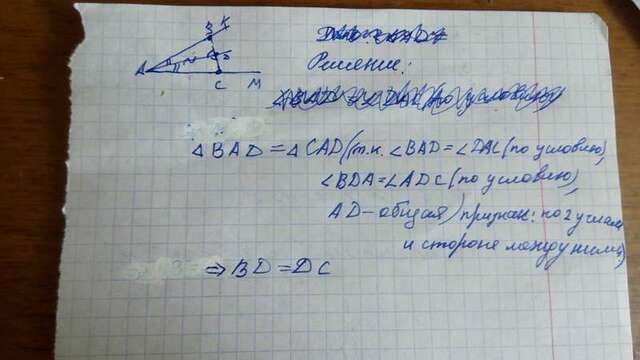 Решение:
△BAD = △CAD (т.к. ∠BAD = ∠DAC (по условию),
∠BDA = ∠ADC (по условию),
AD – общая) признак: по 2 углам
и стороне между ними)
⇒ BD = DC
A
C
M